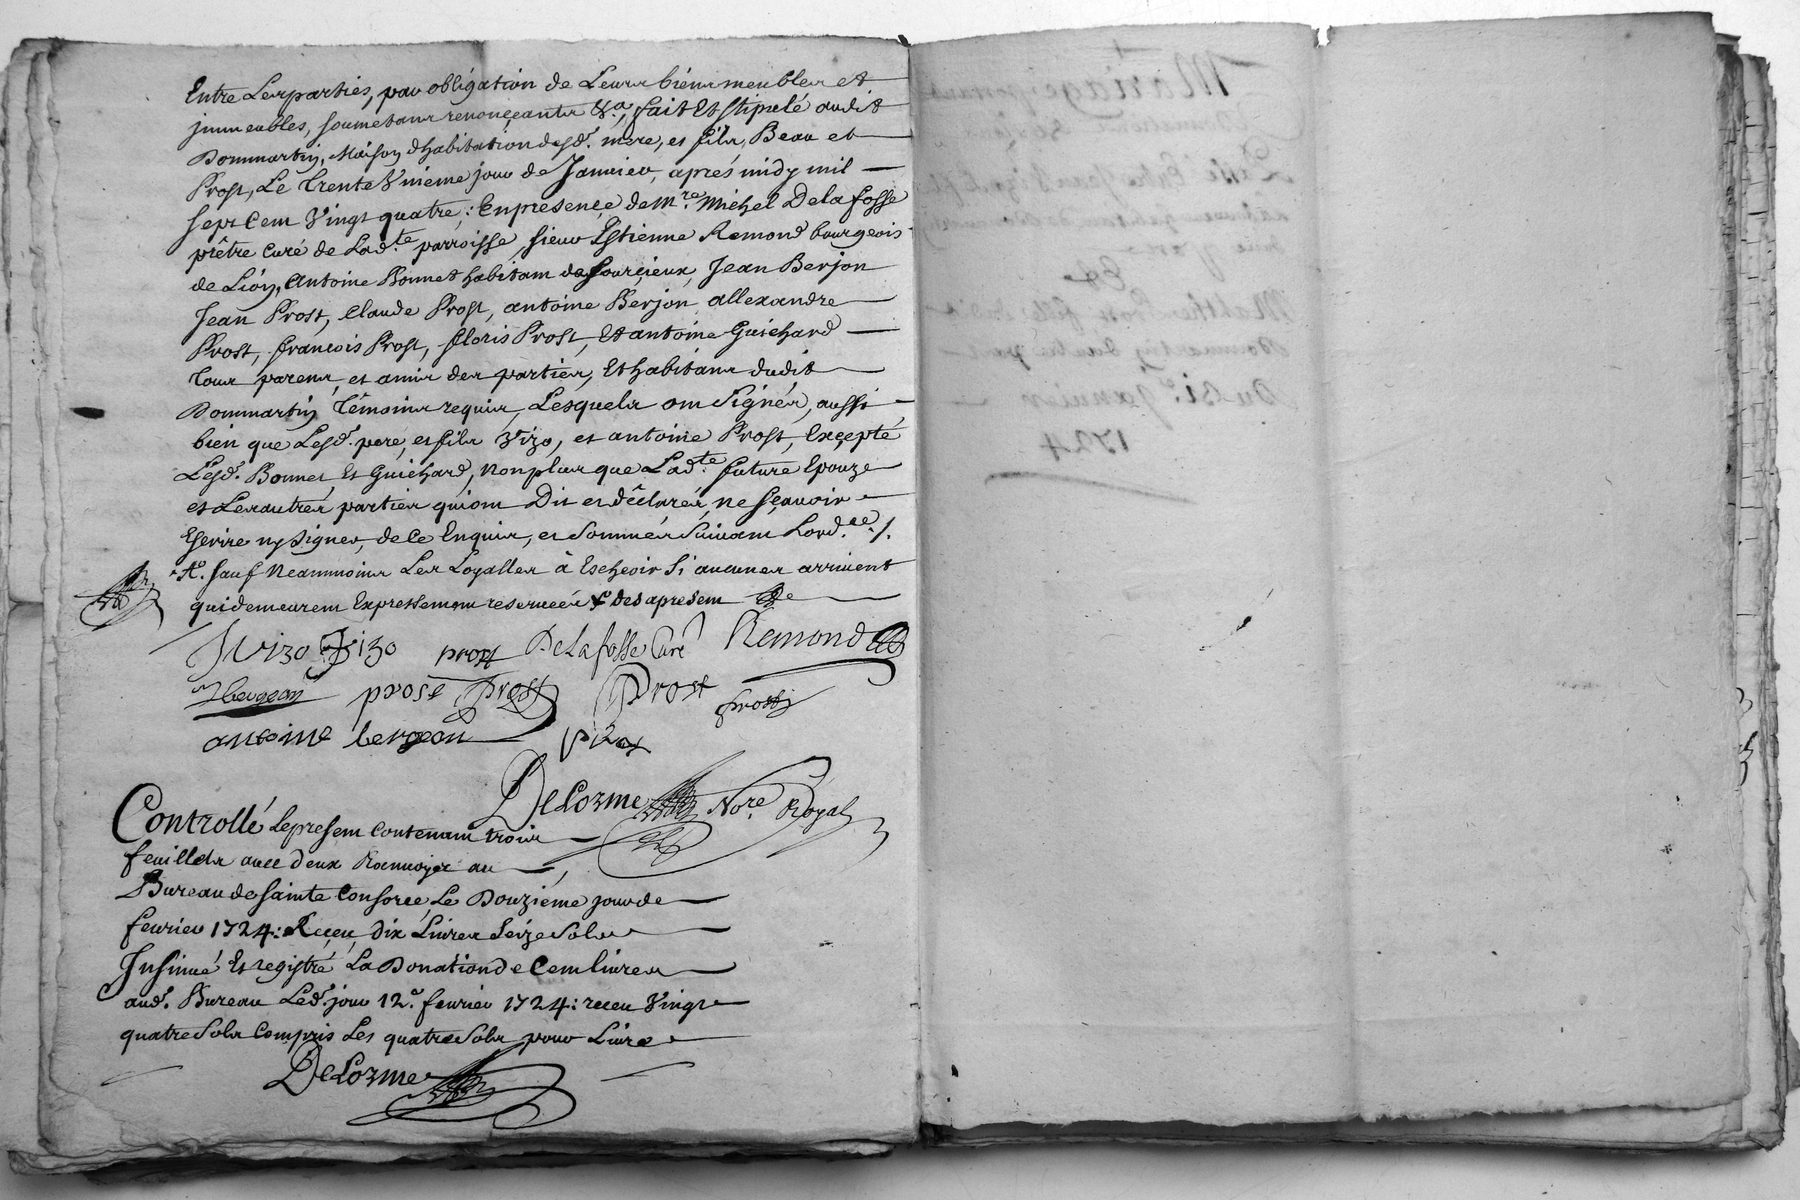 Entre Les parties, par obligation de Leurs biens meubles et
jmmeubles, soumetans renonçeants &a, fait Et stipulé audit
Dommartin, Maison d'habitation desd. mere, et fils, Beau et
Prost, Le Trente Vnieme jour de Janvier, aprés midy mil
sept Cent Vingt quatre : En presençe de mre. Michel Delafosse
prêtre Curé de Ladte. parroisse, sieur Estienne Remond bourgeois
de Lion, Antoine Bonnet habitant de Sourçieux, Jean Berjon
Jean Prost, Claude Prost, antoine Berjon, allexandre
Prost, françois Prost, floris Prost, Et antoine Guichard
Tous parens, et amis des parties, Et habitans dudit
Dommartin Témoins requis, Lesquels ont Signés, aussi
bien que Lesd. pere, et fils Vizo, et antoine Prost, Exçepté
Lesd. Bonnet Et Guichard, non plus que Ladte. future Epouze
et Les autres parties qui ont Dit et déclarés, ne sçavoir
Escrire ny signer, de ce Enquis, et Sommés Suivant Lord.ce /.
sauf Neanmoins Les Loyalles à Escheoir Si aucunes arrivent
qui demeurent Expressement reservées des apresent
JVizo Vizo prost DeLafosse Curé Remond
Bergeon prost Prost Prost prost
antoine bergeon
DeLorme Nore. Royal
Controllé Le present Contenant trois
feuillets avec deux Renvoyes au
Bureau de Sainte Consorce, Le Douziéme jour de
fevrier 1724 : Reçeu dix Livres Seize Sols
Jnsinué Et registré La Donation de Cent livres
aud. Bureau Led. jour 12.e fevrier 1724 : receu Vingt
quatre Sols Compris Les quatre Sols pour Livre
DeLorme
Mariage
1724